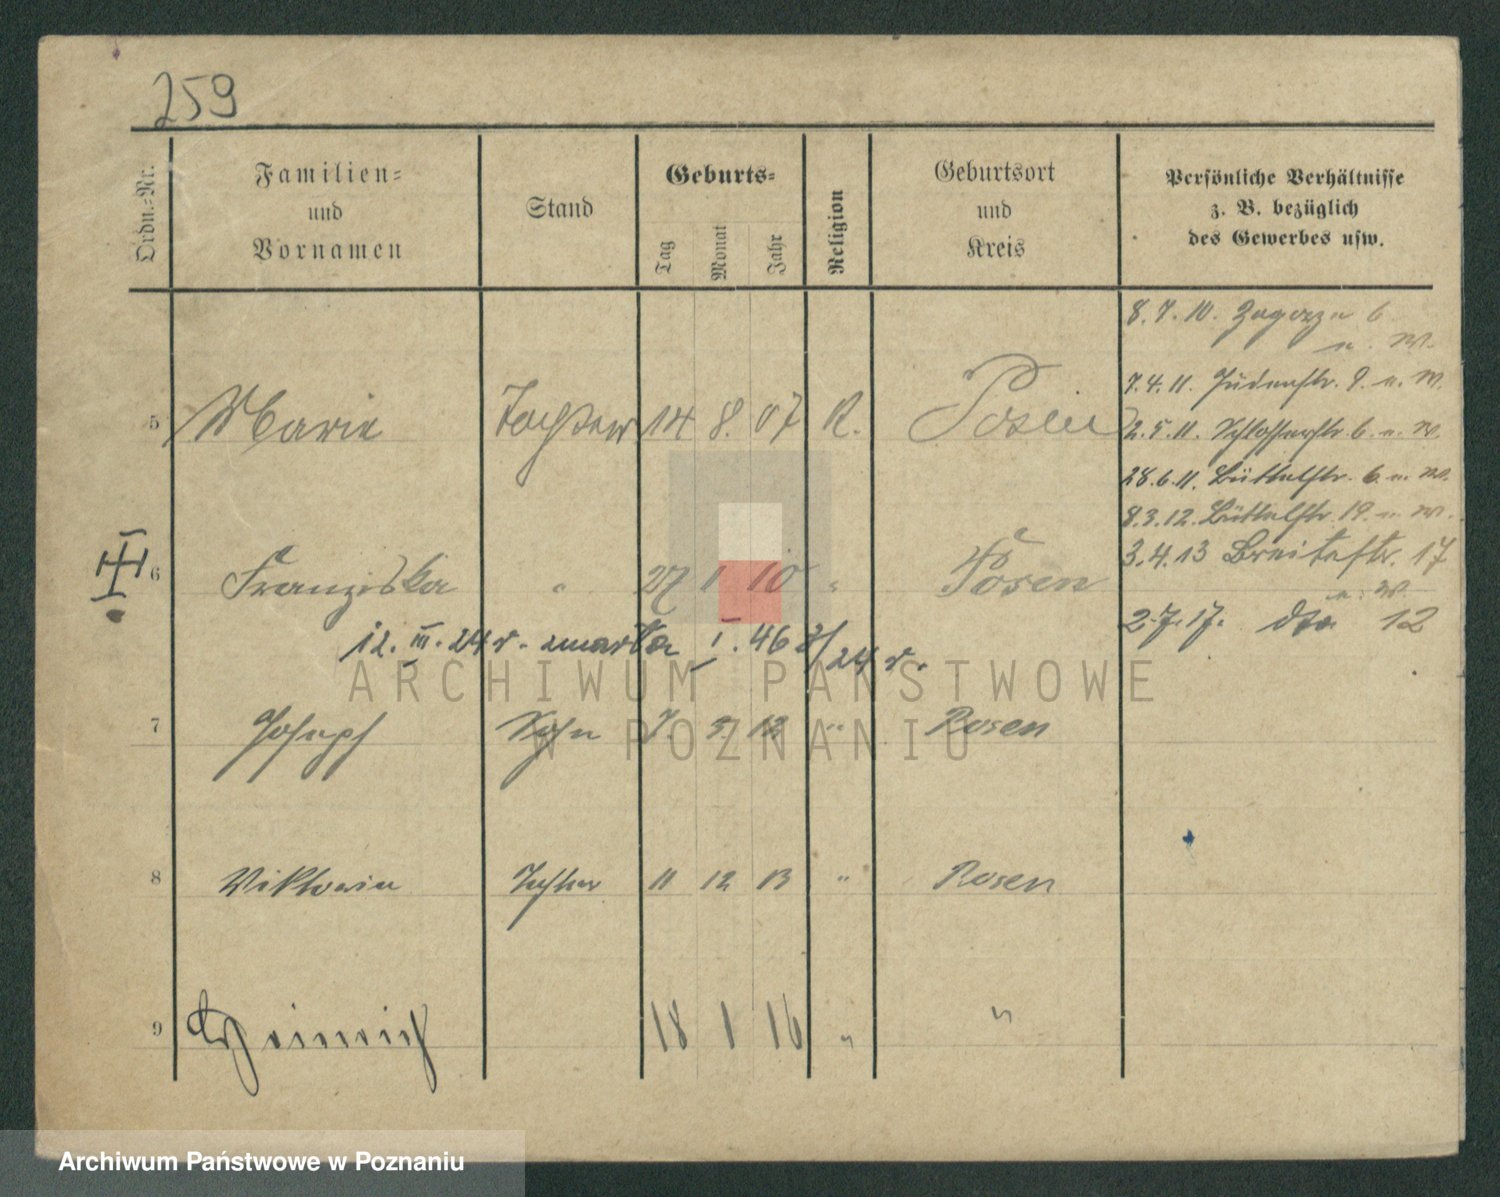 259
Ordn.-Nr.
Familien-
und
Vornamen
Stand
Geburts-
Tag
Monat
Jahr
Religion
Geburtsort
und
Kreis
Persönliche Verhältnisse
z. B. bezüglich
des Gewerbes usw.
8.7.10. Zagorze 6
n. W.
7.4.11. Judenstr. 9. n. W.
5 Marie Tochter 14 8. 07 R. Posen
2.5.11. Schlosserstr. 6. n. W.
28.6.11. Büttelstr. 6 n. W.
8.3.12. Büttelstr. 19. n. W.
3.4.13 Breitestr. 17
n. W.
6 Franziska " 27 1 10 " Posen
2.7.17. dto 12
12. III. 24 r. zmarła I. 46 /24 r.
ARCHIWUM PAŃSTWOWE
W POZNANIU
7 Joseph Sohn 7. 3. 12 " Posen
8 Viktoria Tochter 11 12 13 " Posen
9 Heinrich 18 1 16 " "
Archiwum Państwowe w Poznaniu